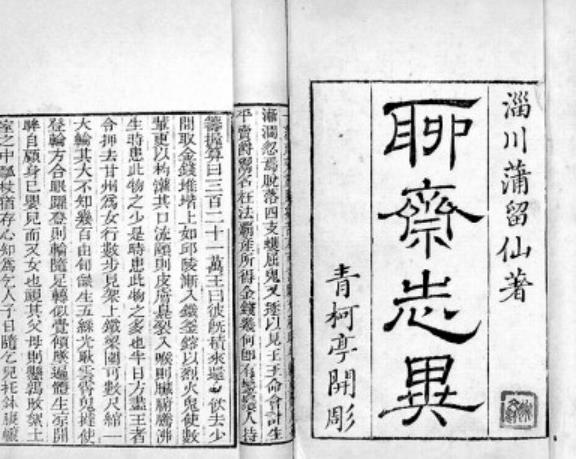 淄川蒲留仙著
聊齋志異
青柯亭開彫
漸濶忽焉脫落四支蠖屈鬼又逐以見王王命會計生
平賣爵鬻名枉法霸產所得金錢幾何即有人持
籌握算曰三百二十一萬王曰彼既積來還令飲去少
間取金錢堆堦上如邱陵漸入鐵釜鎔以烈火鬼使數
輩更以杓灌其口流頤則皮膚臭裂入喉則臟腑騰沸
生時患此物之少是時患此物之多也半日方盡王者
令押去甘州為女行數步見架上鐵梁圍可數尺綰一
大輪其大不知幾百由旬燄生五綵光耿雲霄鬼撻使
登輪方合眼躍登則輪隨足轉似覺傾墜遍體生涼開
眸自顧身已嬰兒而又女也覘其父母則懸鶉敗絮土
室之中瓢杖猶存心知為乞人子日隨乞兒托鉢腹轆